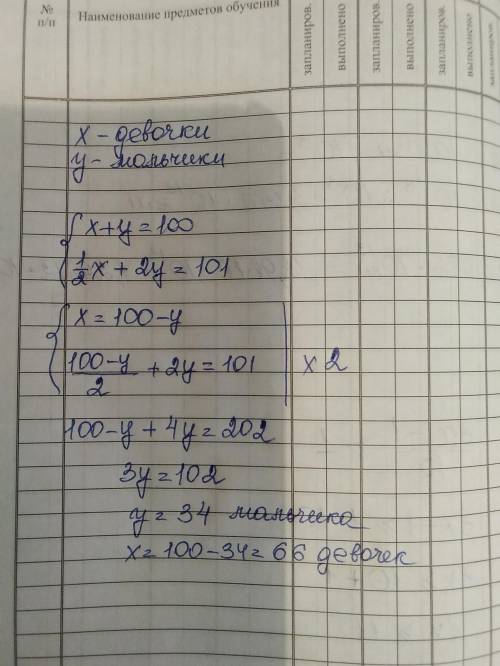 № п/п Наименование предметов обучения запланиров. выполнено запланиров. выполнено запланиров. выполнено запланиров.
x - девочки
y - мальчики
x+y=100
1/2 x + 2y = 101
x = 100-y
100-y/2 + 2y = 101 x 2
100-y + 4y = 202
3y = 102
y = 34 мальчика
x = 100-34 = 66 девочек